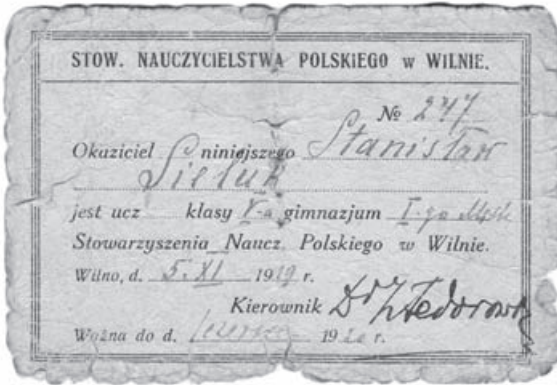 STOW. NAUCZYCIELSTWA POLSKIEGO w WILNIE.
№ 247
Okaziciel niniejszego Stanisław
Sieluk
jest ucz klasy V-a gimnazjum I-go Męsk
Stowarzyszenia Naucz. Polskiego w Wilnie.
Wilno, d. 5.XI 1919 r.
Kierownik Dr Fedorowicz
Ważna do d. czerwca 1920 r.